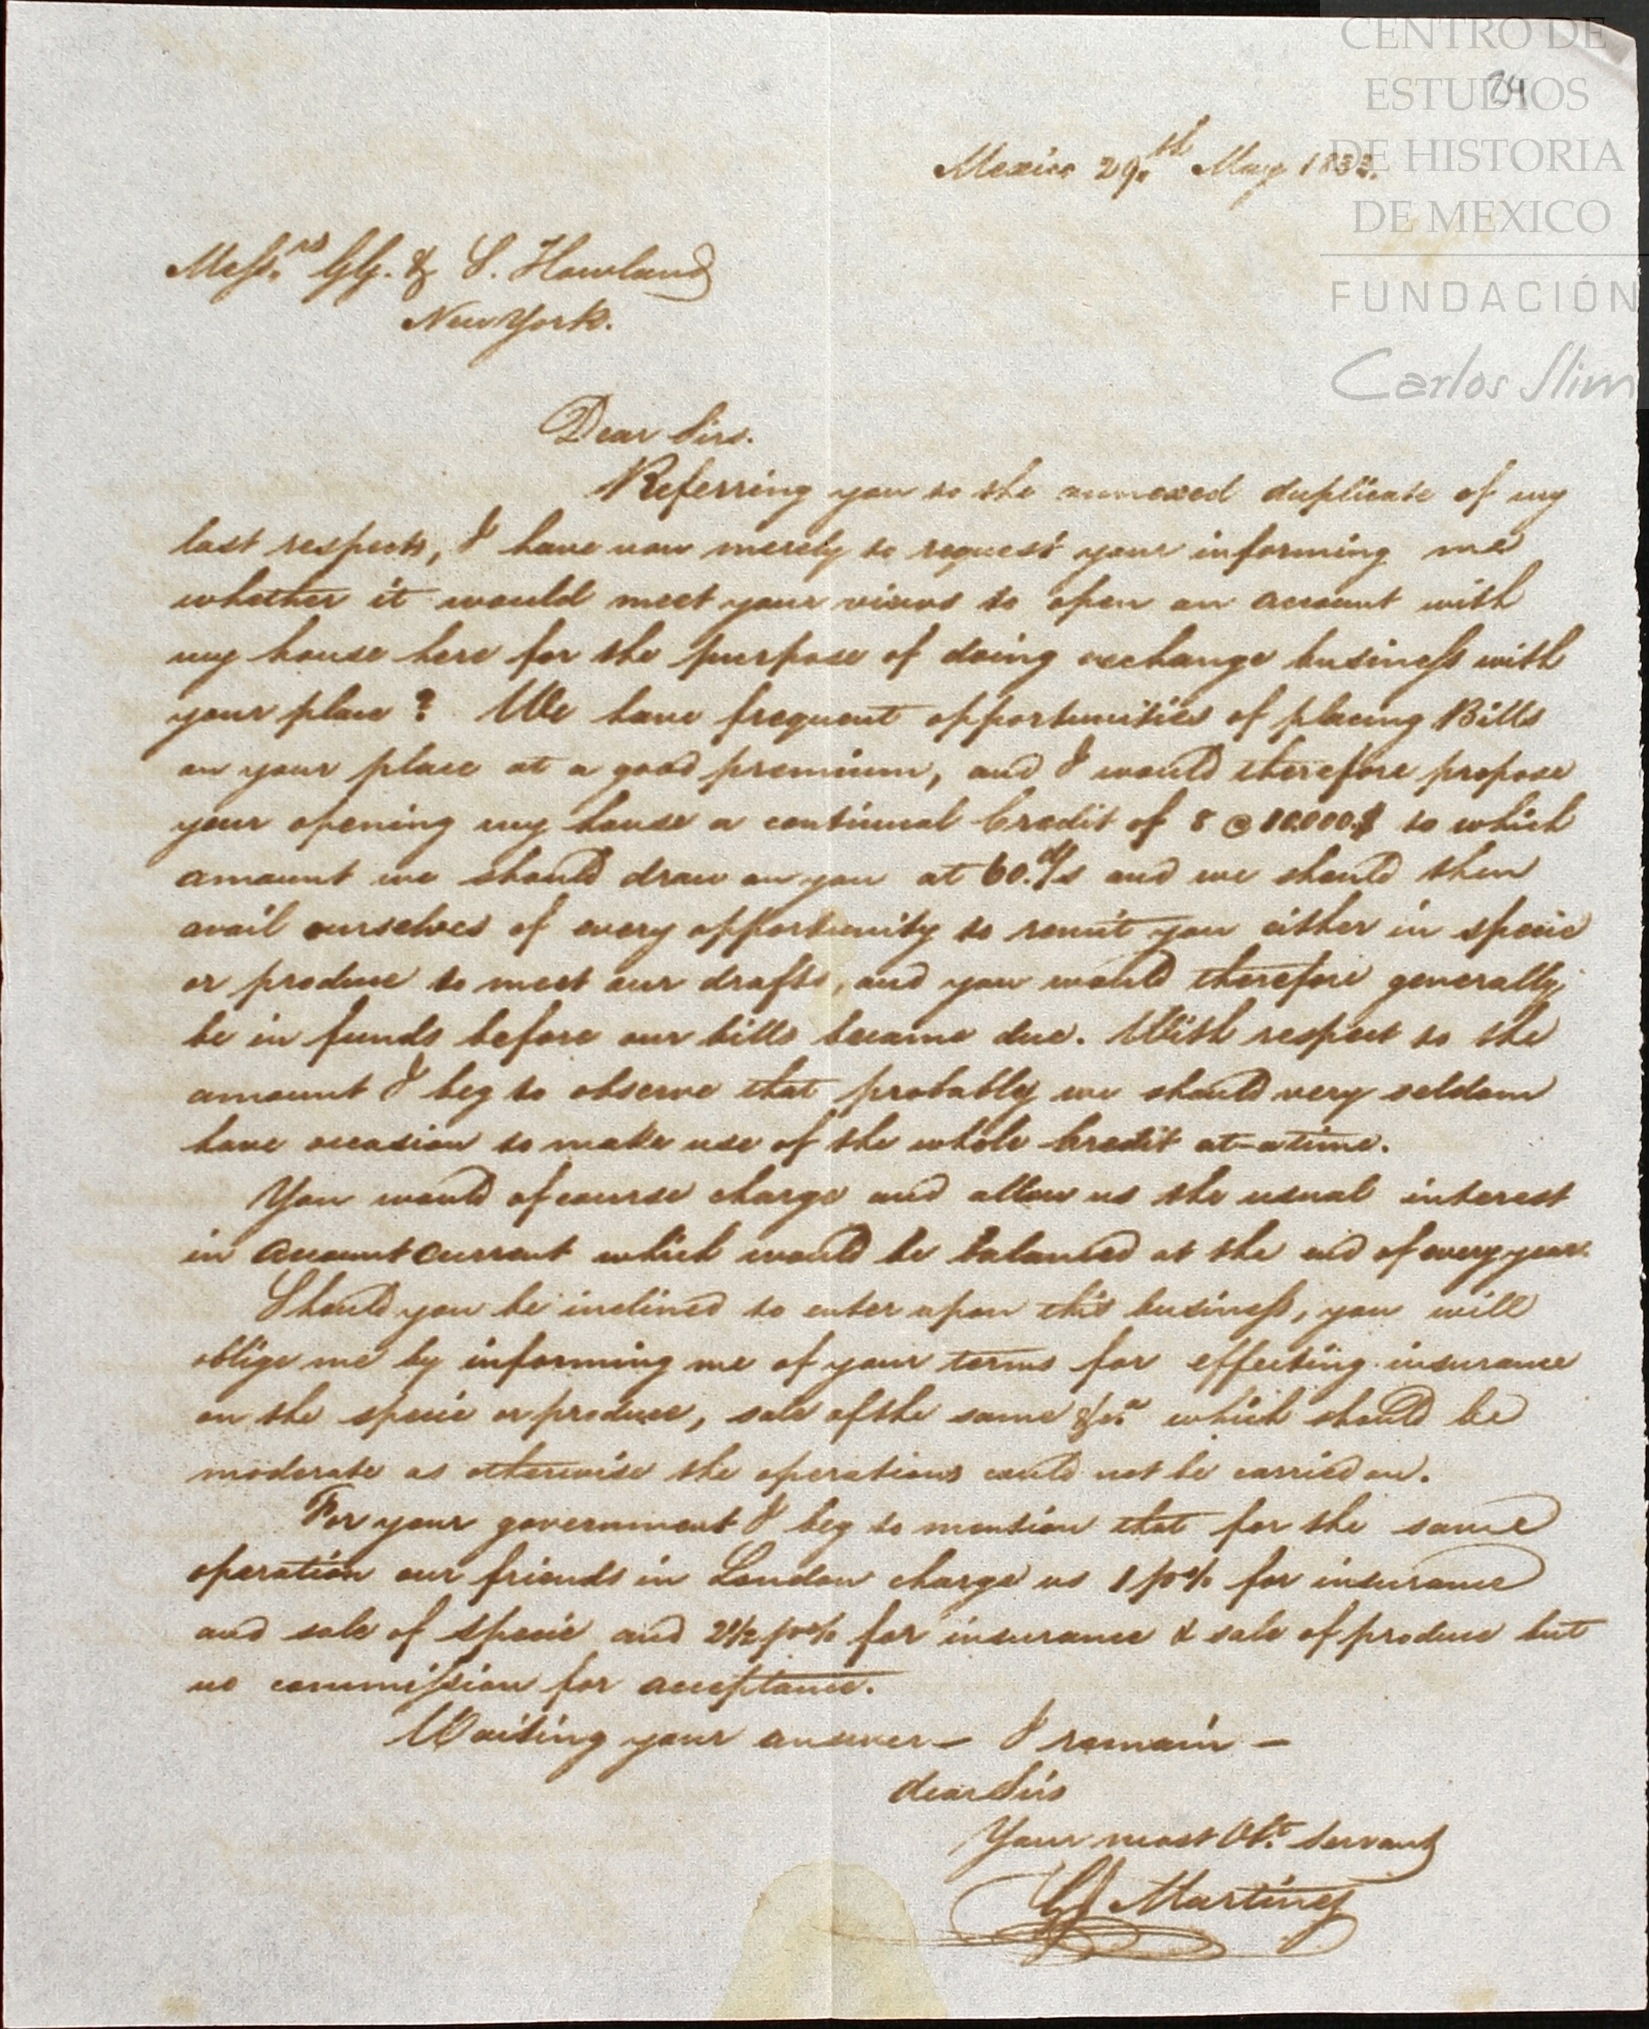 CENTRO DE
ESTUDIOS
DE HISTORIA
DE MEXICO
FUNDACIÓN
Carlos Slim
24
Mexico 29.th May 1833.
Messrs. GG. & S. Howland
New York.
Dear Sirs.
Referring you to the annexed duplicate of my
last respects, I have now merely to request your informing me
whether it would meet your views to open an account with
my house here for the purpose of doing exchange business with
your place? We have frequent opportunities of placing Bills
on your place at a good premium, and I would therefore propose
your opening my house a continual Credit of 8 @ 10.000.$ to which
amount we should draw on you at 60.d/s and we should then
avail ourselves of every opportunity to remit you either in specie
or produce to meet our drafts, and you would therefore generally
be in funds before our bills became due. With respect to the
amount I beg to observe that probably we should very seldom
have occasion to make use of the whole Credit at a time.
You would of course charge and allow us the usual interest
in Account Current which would be balanced at the end of every year.
Should you be inclined to enter upon this business, you will
oblige me by informing me of your terms for effecting insurance
on the specie or produce, sale of the same &ca. which should be
moderate as otherwise the operations could not be carried on.
For your government I beg to mention that for the same
operation our friends in London charge us 1 p% for insurance
and sale of specie and 2½ p% for insurance & sale of produce but
no commission for acceptance.
Waiting your answer - I remain -
dear Sirs
Your most Obt. Servant
Martinez